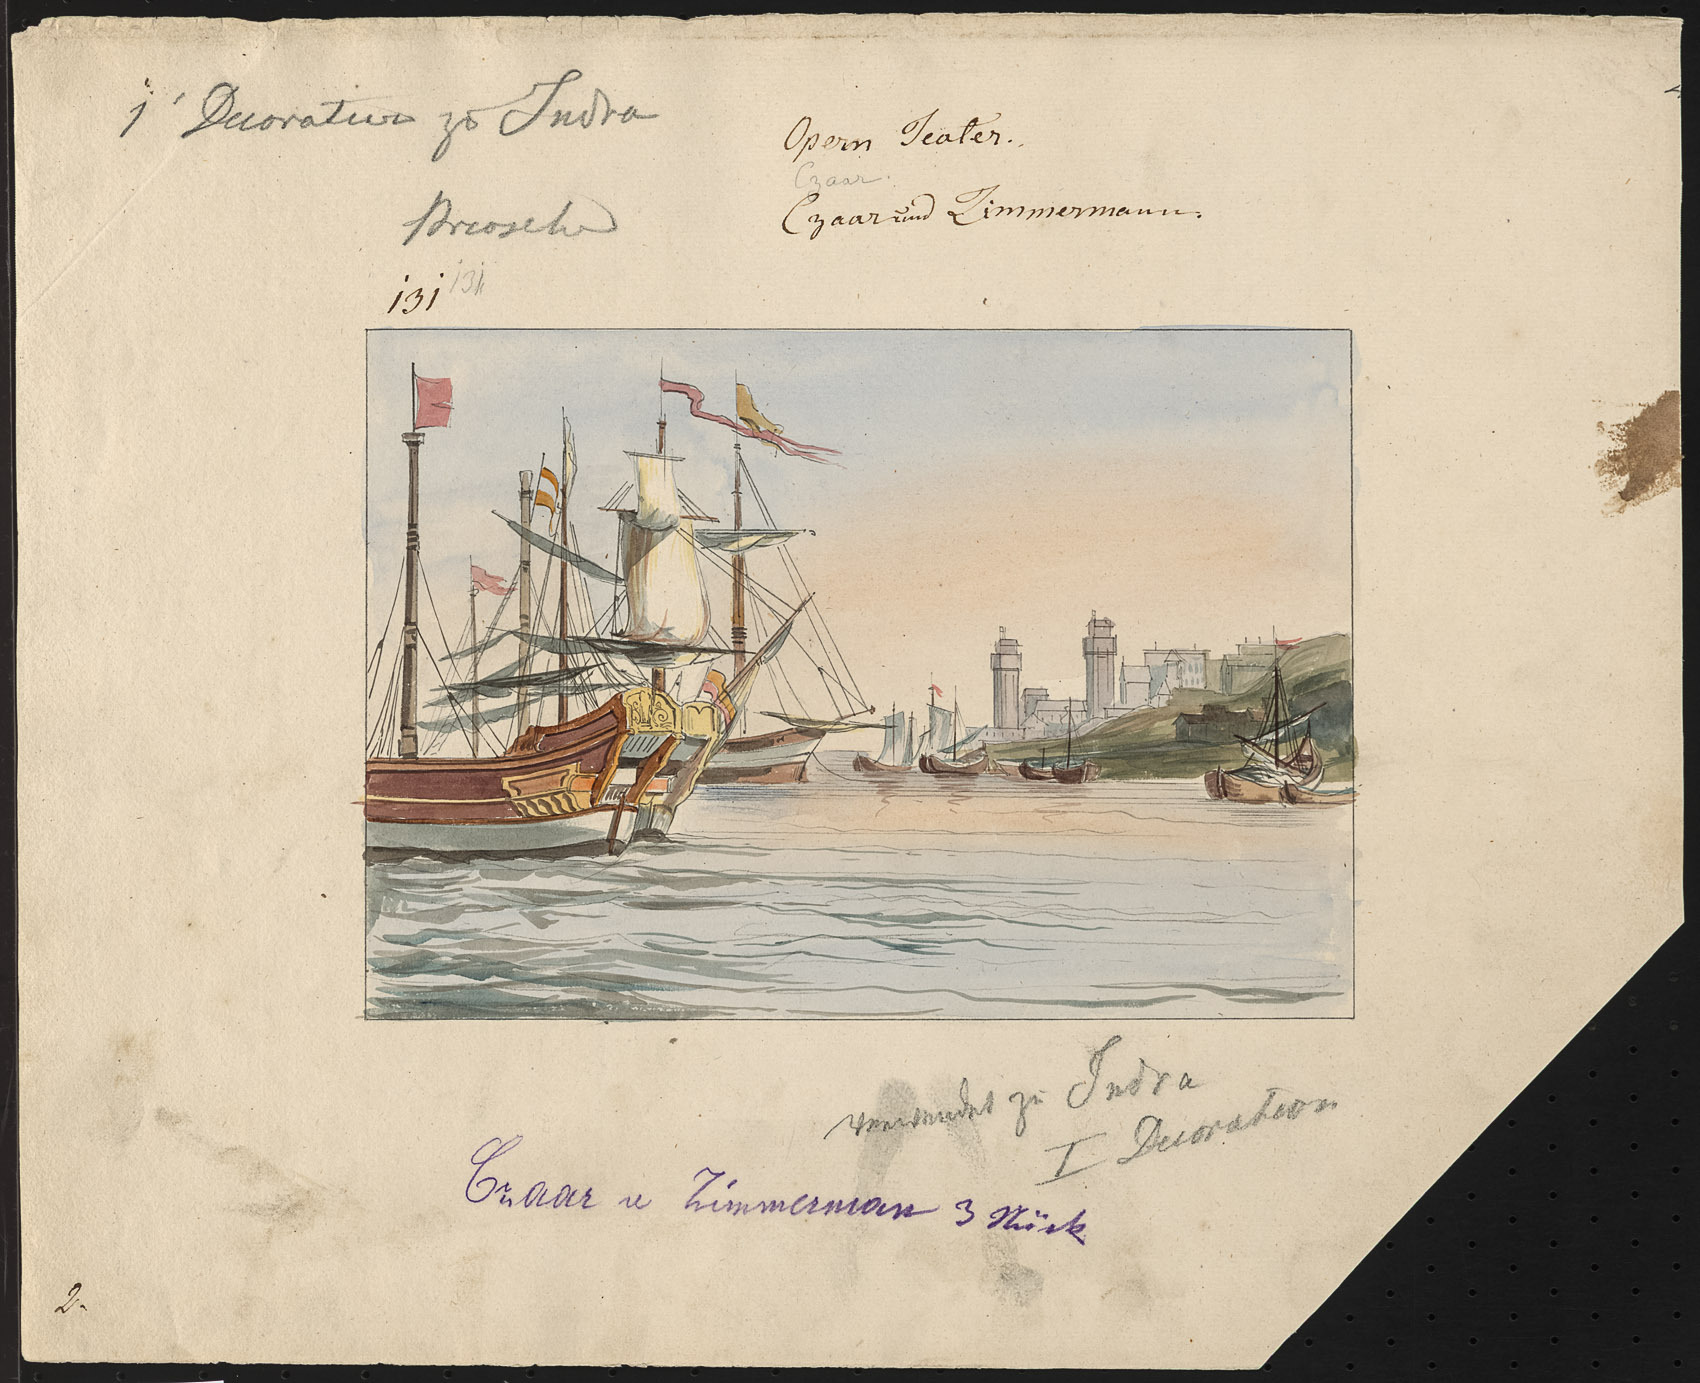 1' Decoration zu Indra
Opern Teater.
Czaar.
Czaar und Zimmermann.
131 131
verwendet zu Indra
I Decoration
Czaar u Zimmerman 3 Stück
2.